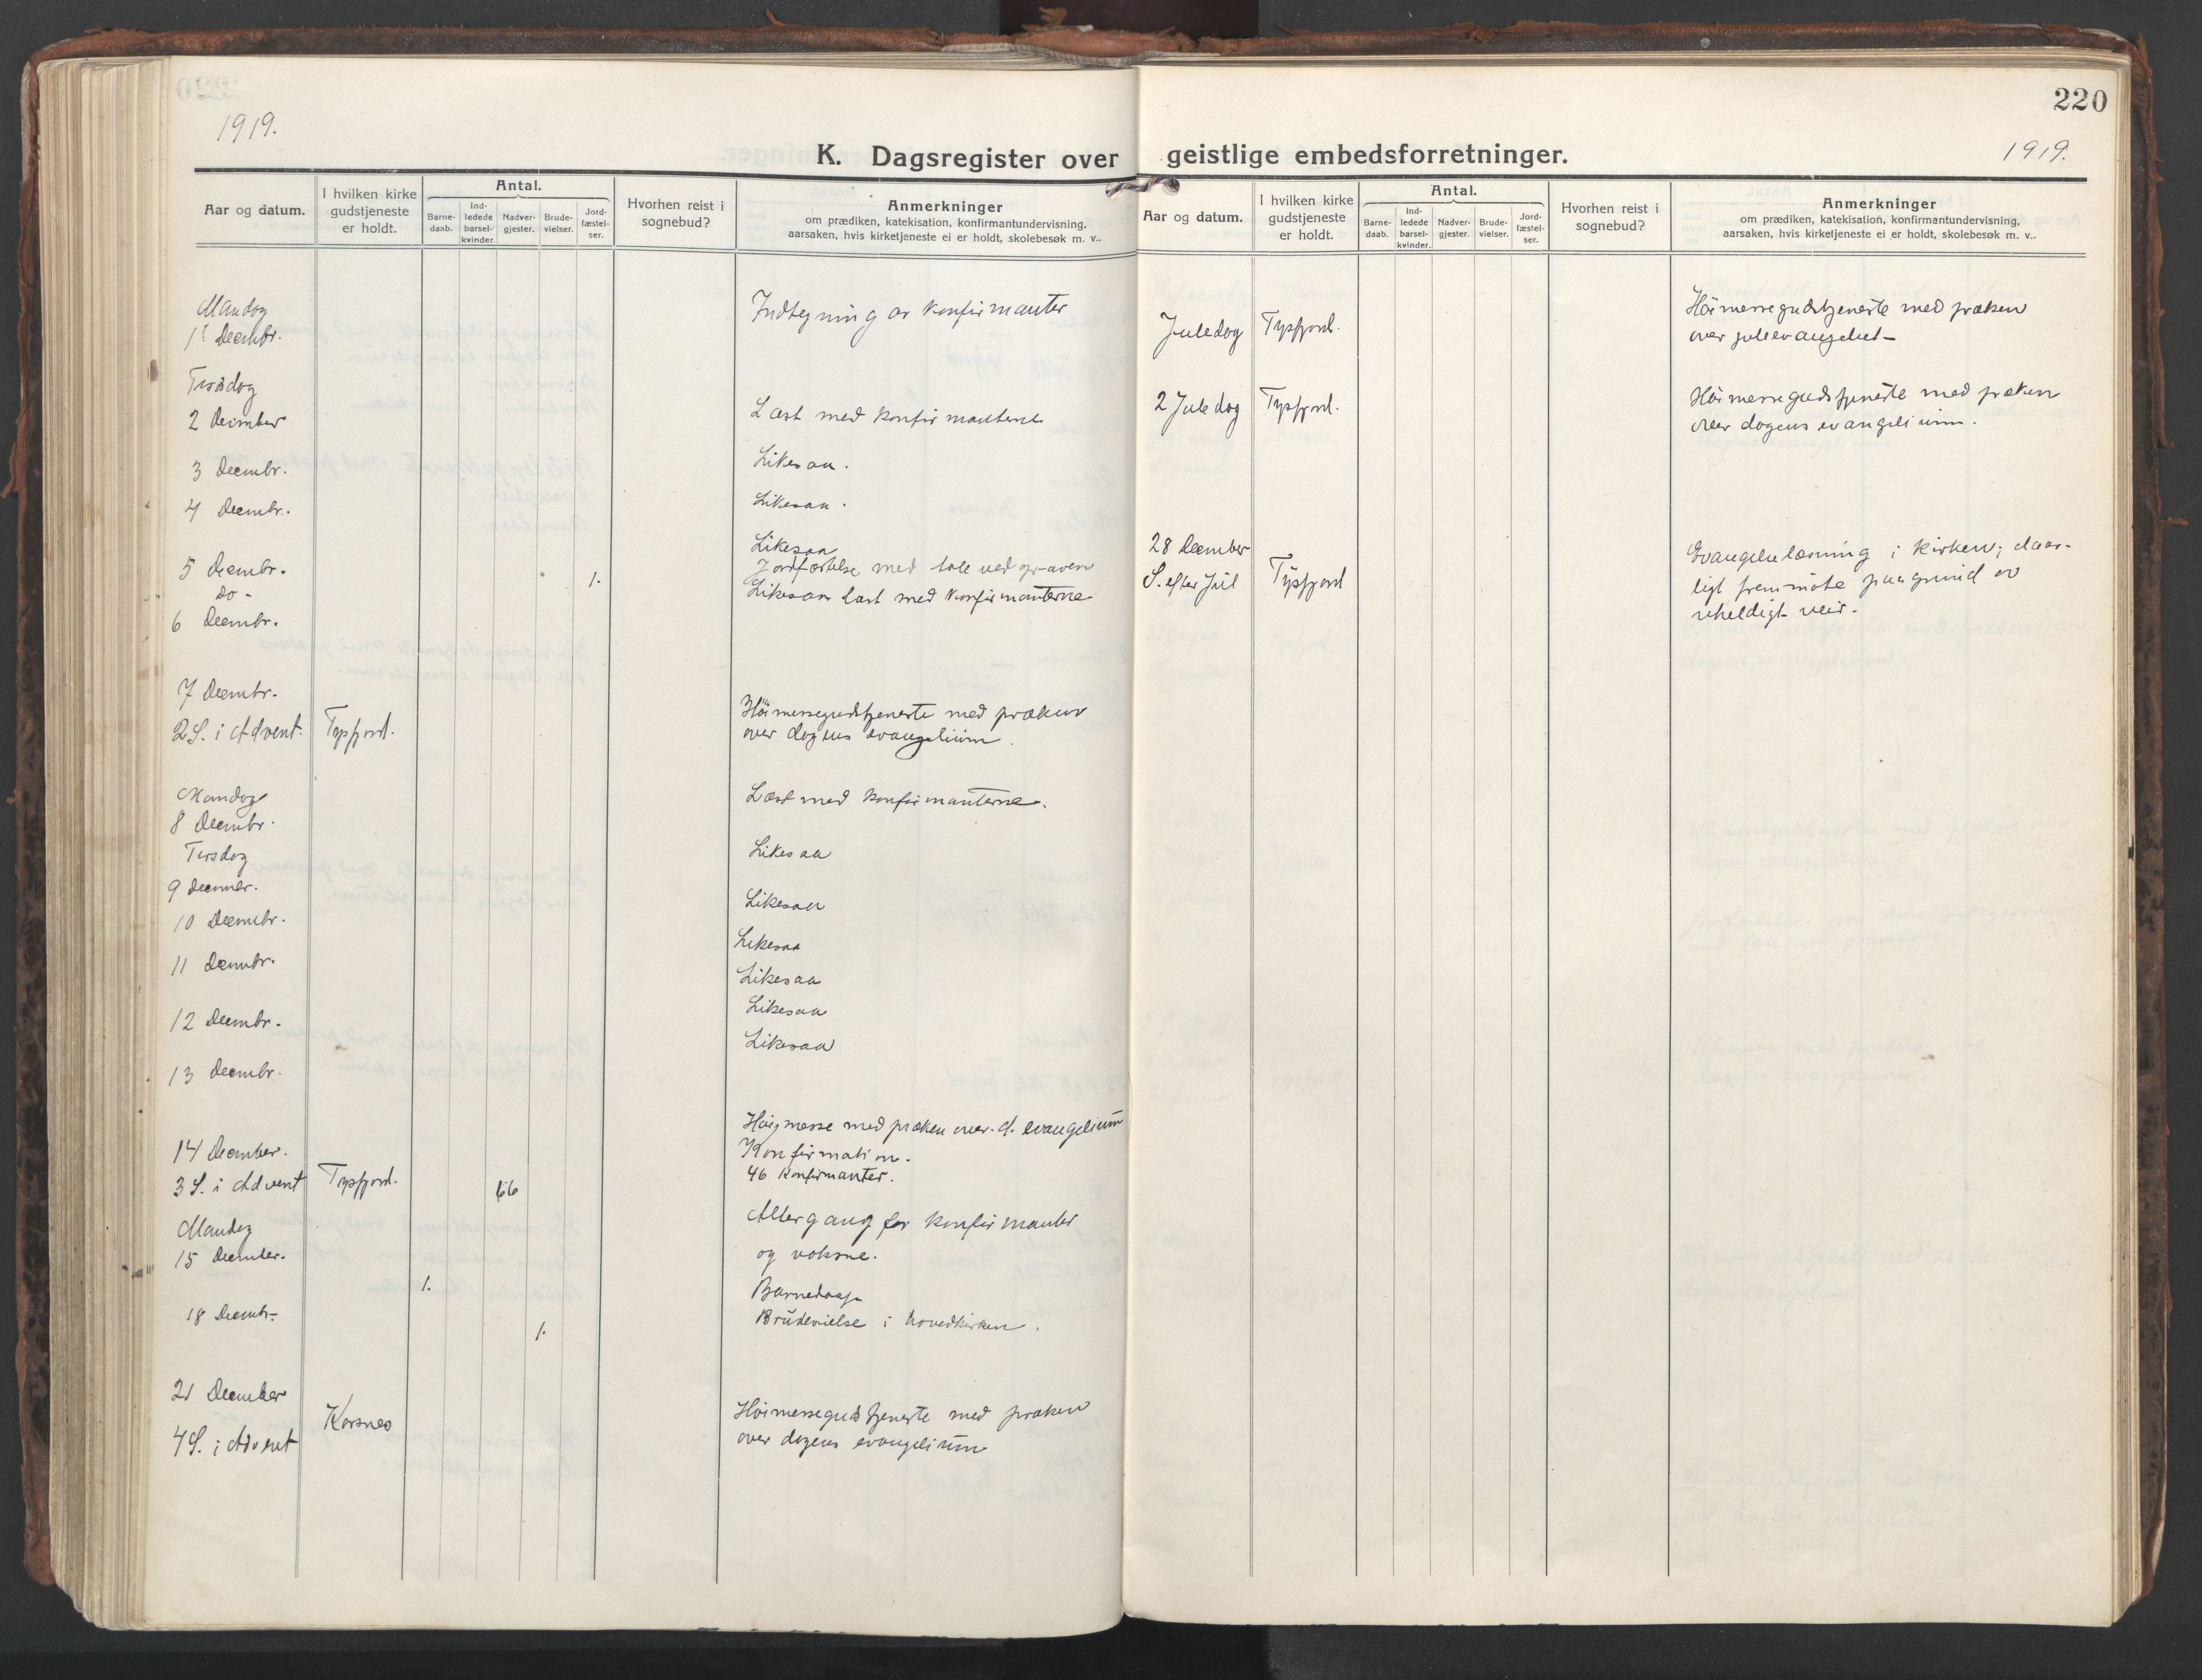 220
1919.
1919.
K. Dagsregister over geistlige embedsforretninger.
Aar og datum.
I hvilken kirke
gudstjeneste
er holdt.
Antal.
Barne-
daab.
Ind-
ledede
barsel-
kvinder.
Nadver-
gjester.
Brude-
vielser.
Jord-
fæstel-
ser.
Hvorhen reist i
sognebud?
Anmerkninger
om prædiken, katekisation, konfirmantundervisning,
aarsaken, hvis kirketjeneste ei er holdt, skolebesøk m. v..
Mandag
1ſ Decmbr.
Indtegning av konfirmanter
Tirsdag
2 Decimber
Læst med konfirmanterne
3 Decmbr.
Likesaa.
4 Decmbr.
Likesaa.
Likesaa
5 Decmbr. 1.
Jordfæstelse med tale ved graven
Do -
Likesaa Læst med konfirmanterne
6 Decmbr.
7 Decmbr.
2 S. i Advent. Tysfjord.
Höimessegudstjeneste med præken
over dagens evangelium.
Mandag
8 Decmbr.
Læst med konfirmanterne.
Tirsdag
Likesaa
9 Decmber.
Likesaa
10 Decmbr.
Likesaa
11 Decmbr.
Likesaa
Likesaa
12 Decmbr.
Likesaa
13 Decmbr.
Höigmesse med præken over d. evangelium
14 December.
Konfirmation.
3 S. i Advent Tysfjord. 66
46 Konfirmanter.
Mandag
Altergang for konfirmanter
15 December.
og voksne.
1.
Barnedaap
18 Decmbr. 1.
Brudevielse i hovedkirken.
21 December
4 S. i Advent Korsnes
Höimessegudstjeneste med præken
over dagens evangelium
Aar og datum.
I hvilken kirke
gudstjeneste
er holdt.
Antal.
Barne-
daab.
Ind-
ledede
barsel-
kvinder.
Nadver-
gjester.
Brude-
vielser.
Jord-
fæstel-
ser.
Hvorhen reist i
sognebud?
Anmerkninger
om prædiken, katekisation, konfirmantundervisning,
aarsaken, hvis kirketjeneste ei er holdt, skolebesøk m. v..
Juledag Tysfjord.
Höimessegudstjeneste med præken
over juleevangeliet
2 Juledag Tysfjord.
Höimessegudstjeneste med præken
over dagens evangelium.
28 December
S. efter Jul Tysfjord
Evangelielæsning i kirken; daar-
ligt fremmöte paa grund av
uheldigt veir.